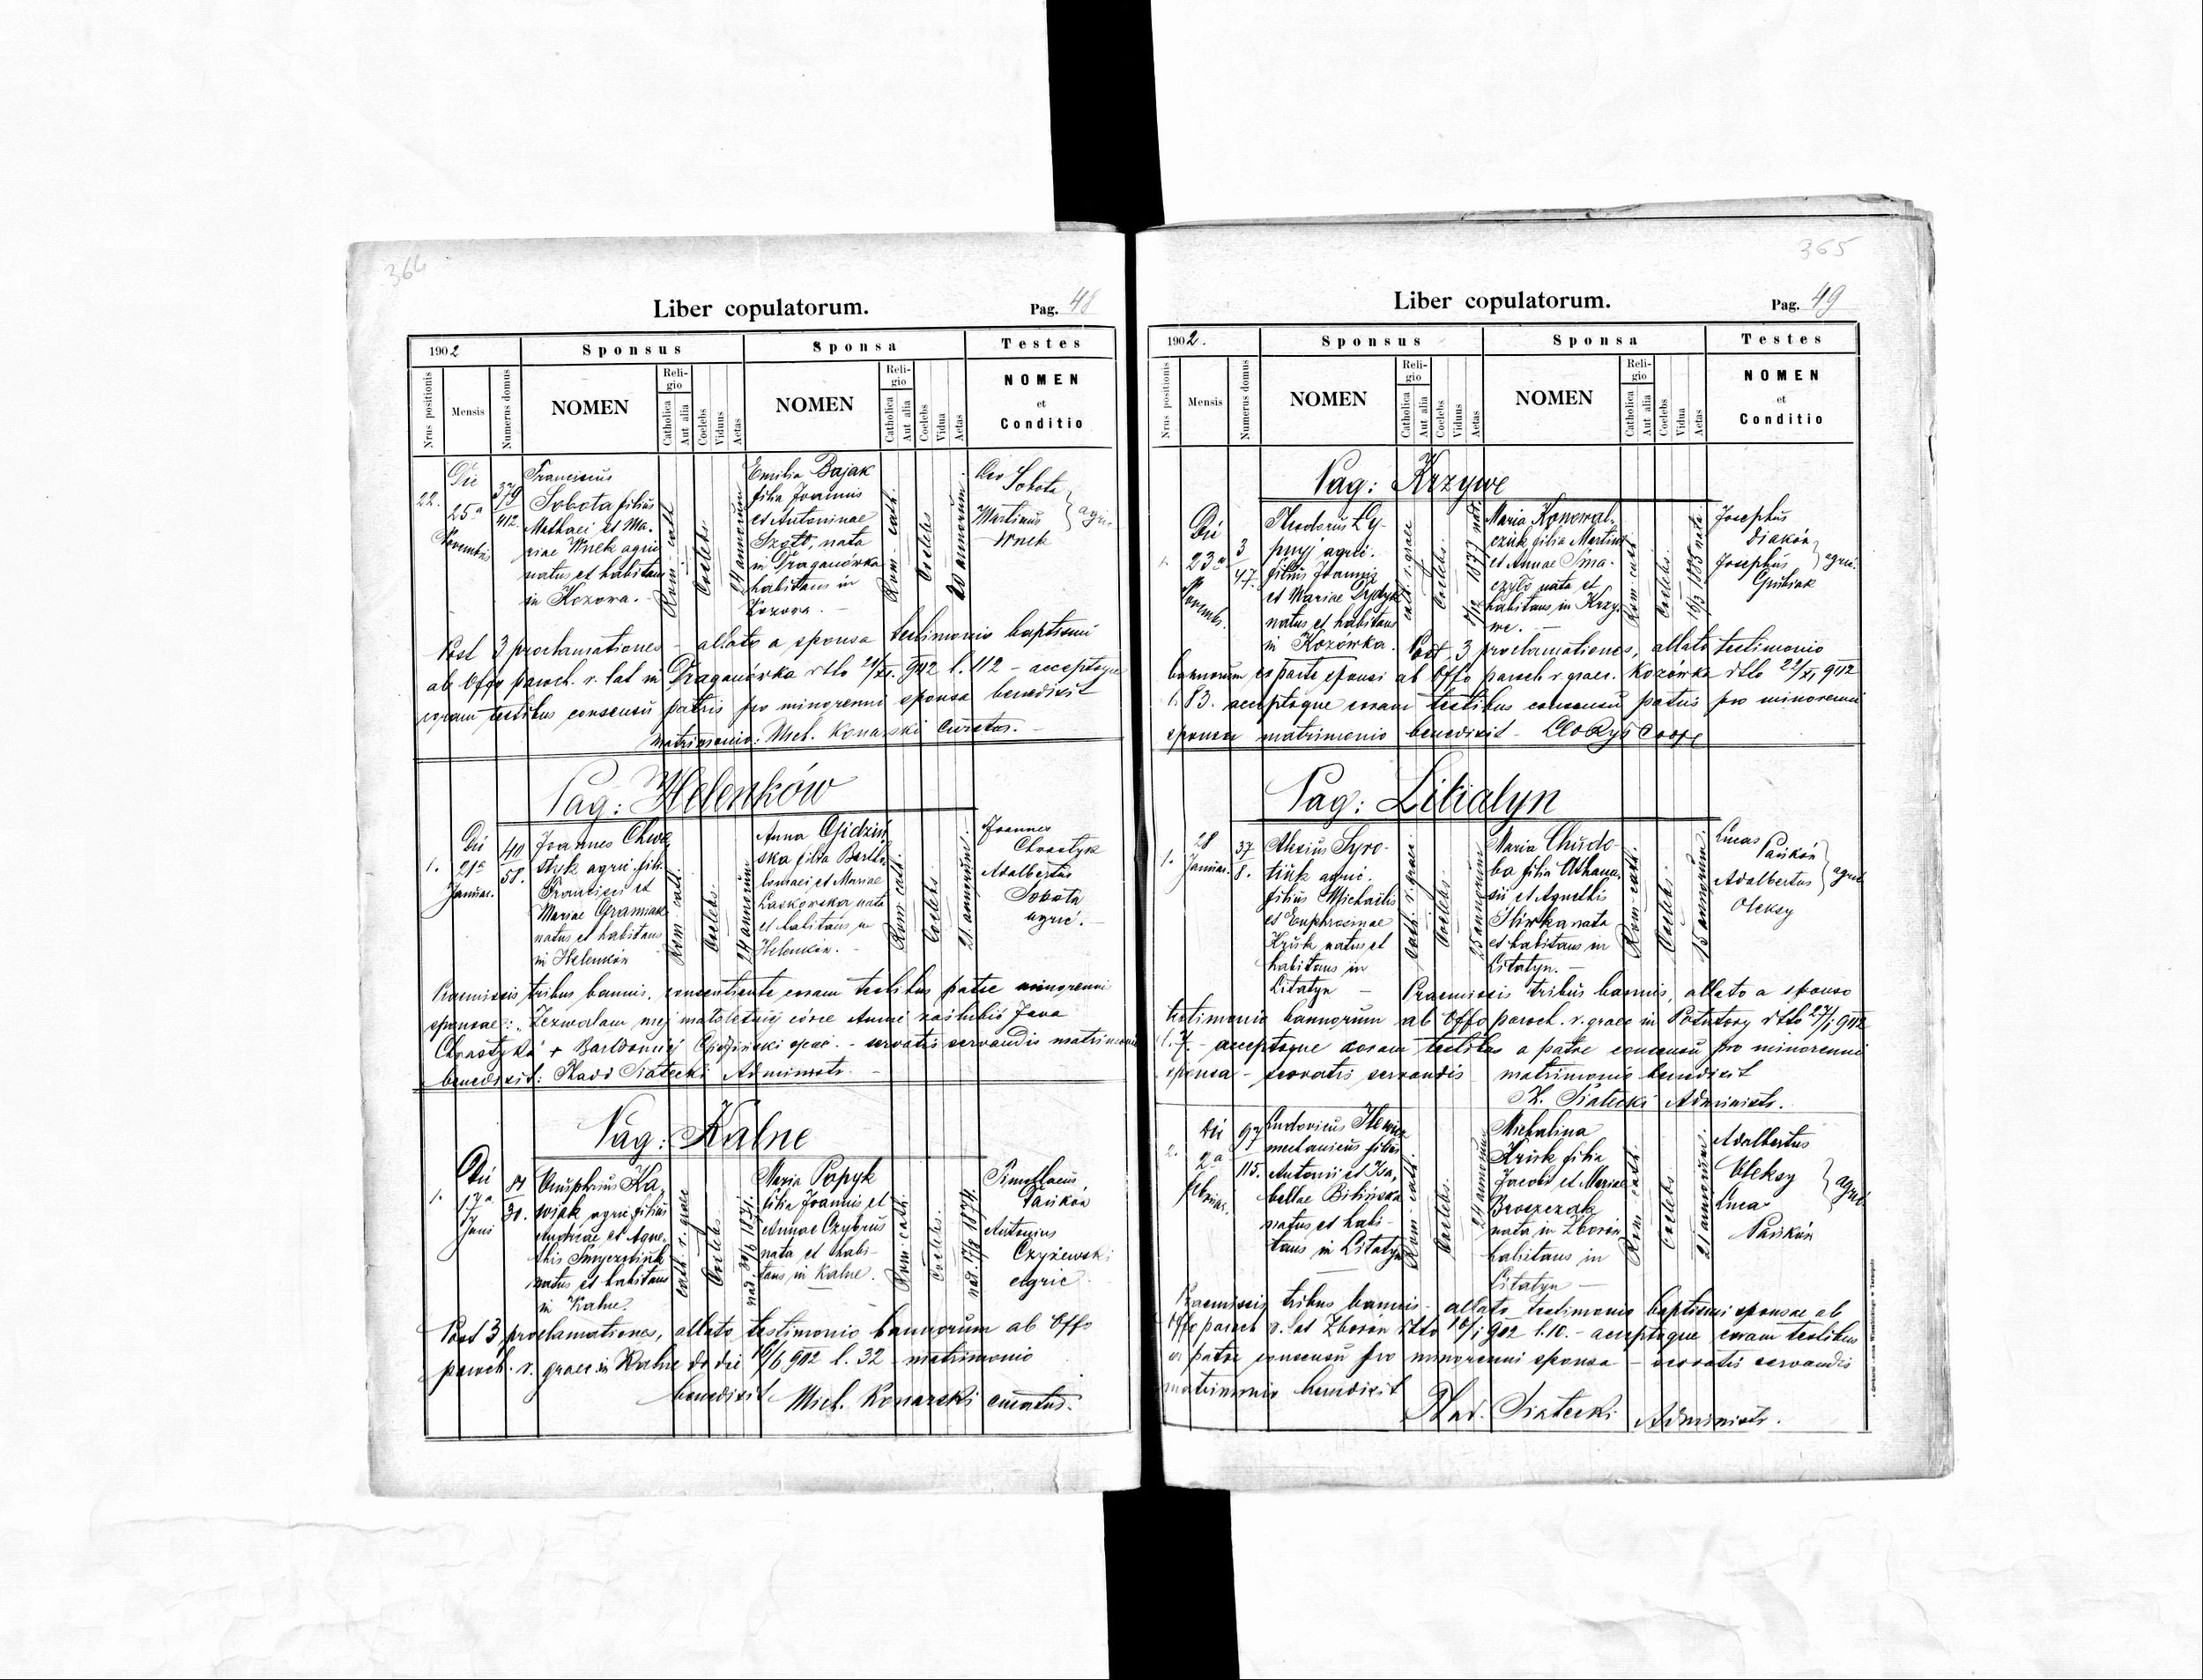 364
Liber copulatorum.
Pag. 48
1902
Sponsus
Sponsa
Testes
Nrus positionis
Mensis
Numerus domus
NOMEN
Religio
Catholica
Aut alia
Coelebs
Viduus
Aetas
NOMEN
Religio
Catholica
Aut alia
Coelebs
Vidua
Aetas
NOMEN
et
Conditio
22.
Die
25a
Novembris
379
412
Franciscus
Sobota filius
Mathaei et Ma-
riae Wnek agric
natus et habitans
in Kozowa.
Rom. cath.
Coelebs
24 annorum
Emilia Bajak
filia Joannis
et Antoninae
nata
in Draganówka
habitans in
Kozowa.
Rom. cath.
Coelebs
20 annorum
Leo
Sobota
Martinus
Wnek
agric
Post 3 proclamationes - allato a sponsa testimonio baptismi
ab Offo paroch. r. lat in Draganówka dtto 902 l. 112 - acceptoque
coram testibus consensu patris pro minorenni sponsa benedixit
matrimonio: Mich. Konarski Curatus.
Pag: Helenków
1.
Die
21a
Januar.
40
58.
Joannes Chwa
styk agric. fili
Francisci et
Mariae Gramiak
natus et habitans
in Helenków
Rom. cath.
Coelebs
24 annorum
Anna
ska filia Bartho
lomaei et Mariae
Laskowska nata
et habitans in
Helenków.
Rom. cath.
Coelebs
21. annorum
Joannes
Chrostyk
Adalbertus
Sobota
agric.
Praemissis tribus bannis, consentiente coram testibus patre minorenni
sponsae: "Zezwalam mej małoletniej córce Annie zaślubić Jana
servatis servandis matrimonio
benedixit: Thad Siatecki Administr.
Pag: Kalne
1.
Die
17a
Juni
81
30.
Onuphrius Ka
wiak agric filius
Andreae et Agne-
natus et habitans
in Kalne.
cath. r. graec
Coelebs
nat. 30/6 1871.
Maria Papyk
filia Joannis et
Annae Czybrus
nata et habi-
tans in Kalne.
Rom. cath.
Coelebs.
nat. 17/8 1874.
Timotheus
Pańków
Antonius
Czyżewski
agric
Post 3 proclamationes, allato testimonio bannorum ab Offo
paroch. r. graec in Kalne de die 16/6 902 l. 32 - matrimonio
benedixit Mich. Konarski curatus.
365
Liber copulatorum.
Pag. 49
1902.
Sponsus
Sponsa
Testes
Nrus positionis
Mensis
Numerus domus
NOMEN
Religio
Catholica
Aut alia
Coelebs
Viduus
Aetas
NOMEN
Religio
Catholica
Aut alia
Coelebs
Vidua
Aetas
NOMEN
et
Conditio
Pag: Krzywe
1.
Die
23a
Novembr.
3
47.
Theodorus Ly-
agric.
filius Joannis
et Mariae Drydyk
natus et habitans
in Kozówka.
cath. r. graec
Coelebs.
1877 nat.
Maria Konowal-
czuk filia Martini
et Annae
nata et
habitans in Krzy-
we.
Rom. cath
Coelebs.
16/3 1885 nata
Josephus
Diaków
Josephus
Gubiak
agric.
Post 3 proclamationes, allato testimonio
bannorum ex parte sponsi ab Offo paroch r. graec. Kozówka dtto 22/XI 902
l. 83. acceptoque coram testibus consensu patris pro minorenni
sponsa matrimonio benedixit
Pag: Litiatyn
1.
28
Januar.
37
8.
Alexius Syro-
tiuk agric.
filius Michaelis
et Euphrosinae
Kruk natus et
habitans in
Litatyn
Cath. r. graec.
Coelebs.
25 annorum
Maria Chudo-
ba filia Athana-
sii et Agnetis
Hirka nata
et habitans in
Litatyn.
Rom. cath.
Coelebs.
15 annorum.
Lucas
Pańków
Adalbertus
Oleksy
agric
Praemissis tribus bannis, allato a sponso
testimonio bannorum ab Offo paroch. r. graec in Potutory dtto 27/I 902
l. 7. - acceptoque coram testibus a patre consensu pro minorenni
sponsa - servatis servandis matrimonio benedixit
Siatecki Administr.
2.
Die
2a
Februar.
97
115.
Ludovicus Ilewicz
mechanicus filius
Antonii et Isa-
bellae Bilińska
natus et habi-
tans in Litatyn
Rom. cath.
Coelebs.
24 annorum
Michalina
Kruk filia
Jacobi et Mariae
Broszczak
nata in Zborów
habitans in
Litatyn
Rom. cath.
Coelebs
21 annorum.
Adalbertus
Oleksy
Lucas
Pańków
agric.
Praemissis tribus bannis - allato testimonio baptismi sponsae ab
Offo paroch r. lat Zborów dtto 902 l. 10. - acceptoque coram testibus
a patre consensu pro minorenni sponsa - servatis servandis
matrimonio benedixit
Thad. Siatecki Administr.